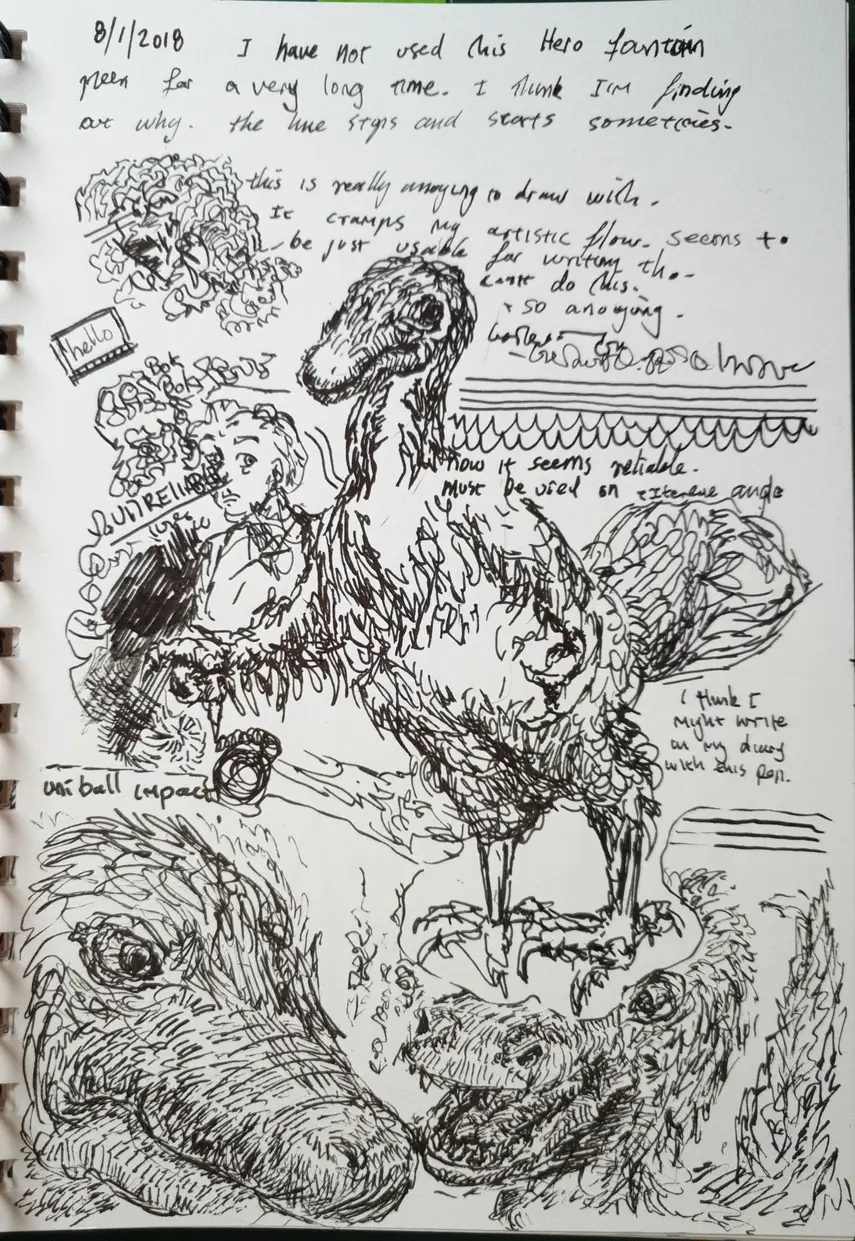 8/1/2018 I have not used this Hero fountain
pen for a very long time. I think I'm finding
out why. the line stops and starts sometimes.
this is really annoying to draw with.
It cramps my artistic flow. Seems to
be just usable for writing tho.
can't do this.
so annoying.
hello
Bok
Bok
UNRELIABLE
now it seems reliable.
Must be used on extereme angle
I think I
might write
in my diary
with this pen.
uni ball impact